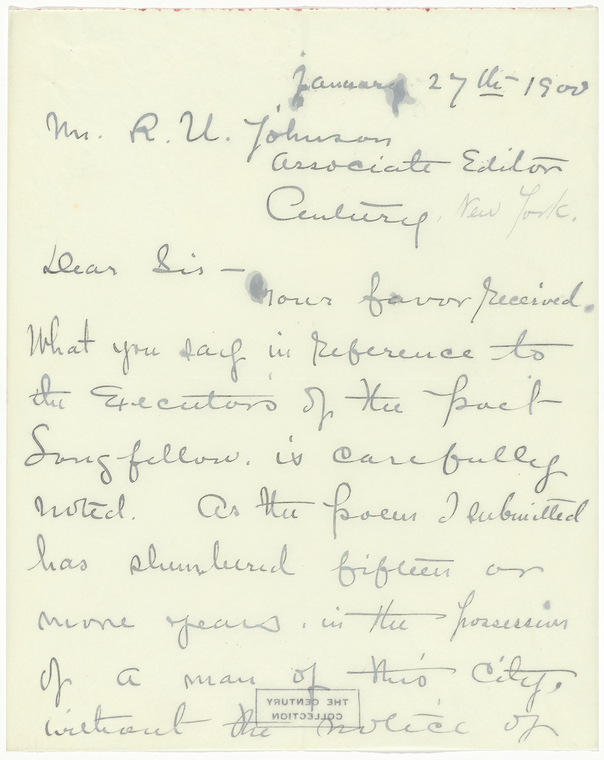 January 27th 1900
Mr. R. U. Johnson
Associate Editor
Century, New York.
Dear Sir —
Your favor received.
What you say in reference to
the Executors of the poet
Longfellow. is carefully
noted. As the poem I submitted
has slumbered fifteen or
more years. in the possession
of a man of this City,
without the notice of
THE CENTURY
COLLECTION